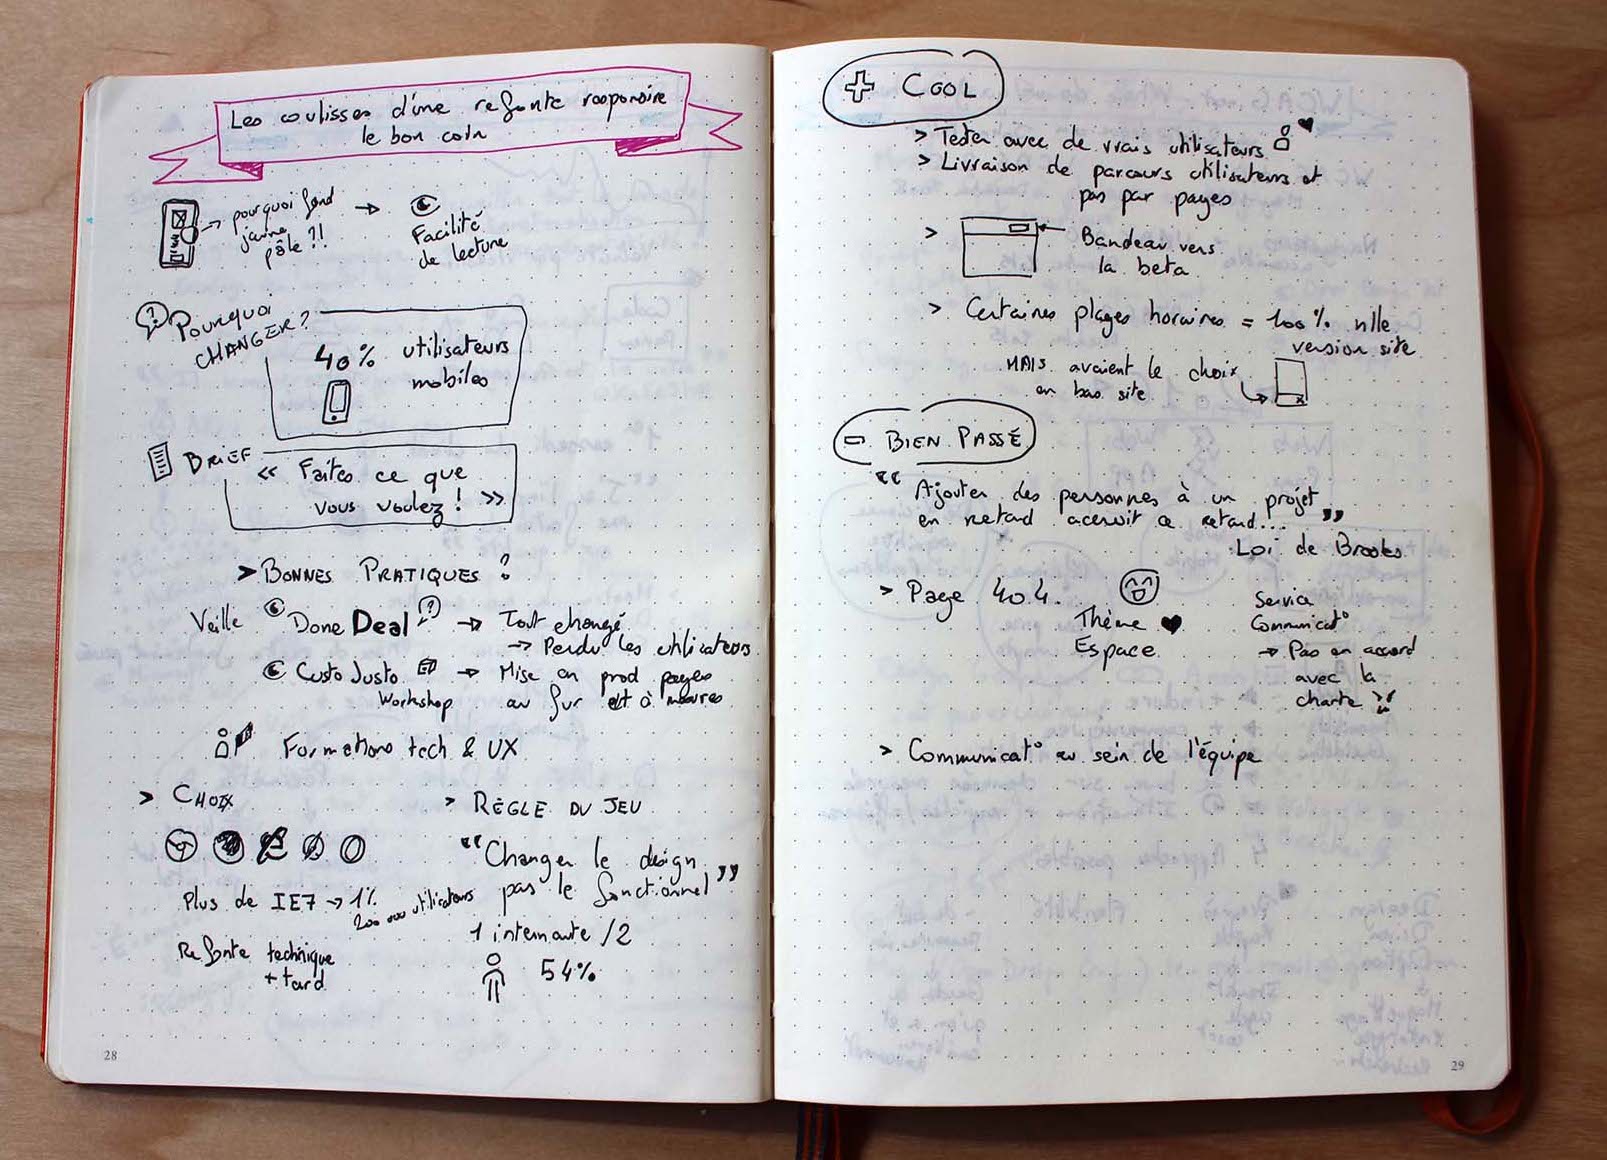 Les coulisses d'une refonte responsive
le bon coin
pourquoi fond
jaune
pâle ?!
Facilité
de lecture
Pourquoi
CHANGER ?
40% utilisateurs
mobiles
BRIEF
« Faites ce que
vous voulez ! »
> BONNES PRATIQUES ?
Veille Done Deal ? → Tout changé
→ Perdu les utilisateurs
Custo Justo → Mise en prod pages
Workshop au fur et à mesures
Formations tech & UX
> CHOIX
Plus de IE7 → 1%
200 000 utilisateurs
Refonte technique
+ tard
> RÈGLE DU JEU
"Changer le design
pas le fonctionnel"
1 internaute /2
54%
28
+ COOL
> Tester avec de vrais utilisateurs
> Livraison de parcours utilisateurs et
pas par pages
> Bandeau vers
la beta
> Certaines plages horaires = 100% nlle
version site
MAIS avaient le choix
en bas site
- BIEN PASSÉ
"Ajouter des personnes à un projet
en retard accroit ce retard..."
Loi de Brooks
> Page 404.
Thème ♥
Espace
Service
Communicat°
→ Pas en accord
avec la
charte
> Communicat° au sein de l'équipe
29